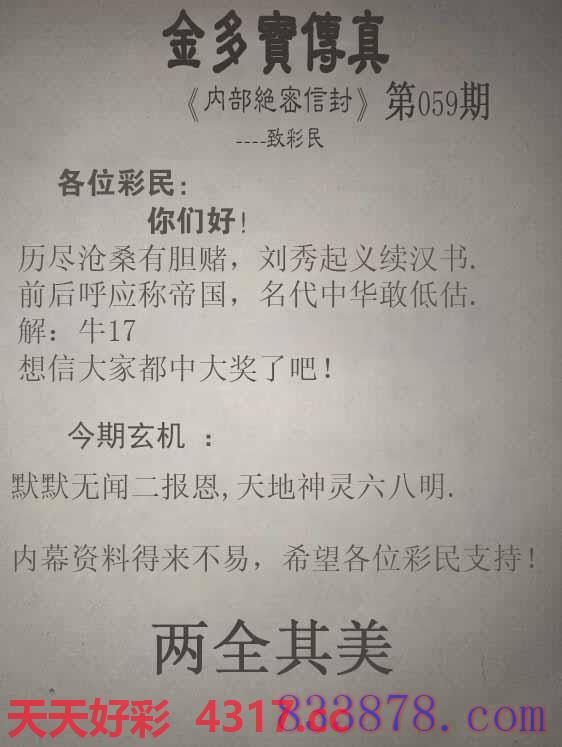 金多寳傳真
《内部絶密信封》第059期
----致彩民
各位彩民:
你们好!
历尽沧桑有胆赌，刘秀起义续汉书.
前后呼应称帝国，名代中华敢低估.
解：牛17
想信大家都中大奖了吧!
今期玄机 ：
默默无闻二报恩,天地神灵六八明.
内幕资料得来不易，希望各位彩民支持!
两全其美
天天好彩 4317.cc
833878.com